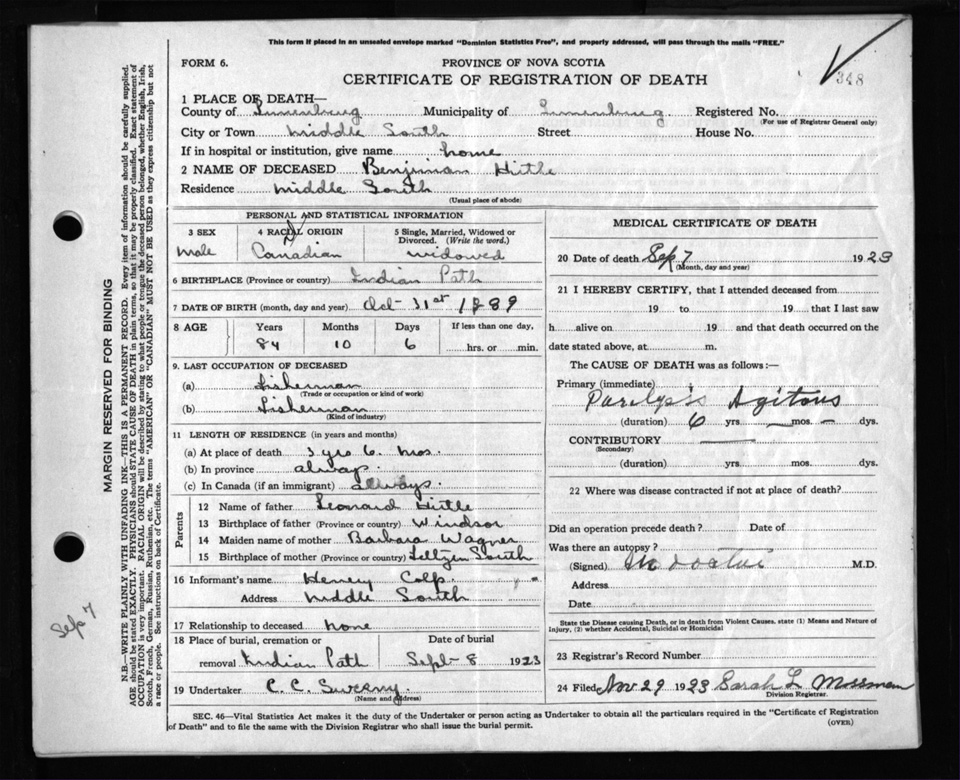 This form if placed in an unsealed envelope marked "Dominion Statistics Free", and properly addressed, will pass through the mails "FREE."
FORM 6.
PROVINCE OF NOVA SCOTIA
CERTIFICATE OF REGISTRATION OF DEATH
348
1 PLACE OF DEATH—
County of Lunenburg Municipality of Lunenburg Registered No.
(For use of Registrar General only)
City or Town Middle South Street House No.
If in hospital or institution, give name home
2 NAME OF DECEASED Benjiman Hirtle
Residence Middle South
(Usual place of abode)
PERSONAL AND STATISTICAL INFORMATION
3 SEX 4 RACIAL ORIGIN 5 Single, Married, Widowed or Divorced. (Write the word.)
male Canadian widowed
6 BIRTHPLACE (Province or country) Indian Path
7 DATE OF BIRTH (month, day and year) Oct 31st 1889
8 AGE Years Months Days If less than one day,
84 10 6 hrs. or min.
9. LAST OCCUPATION OF DECEASED
(a) Fisherman
(Trade or occupation or kind of work)
(b) Fisherman
(Kind of industry)
11 LENGTH OF RESIDENCE (in years and months)
(a) At place of death 3 yrs 6. mos.
(b) In province always.
(c) In Canada (if an immigrant) always.
Parents
12 Name of father Leonard Hirtle
13 Birthplace of father (Province or country) Windsor
14 Maiden name of mother Barbara Wagner
15 Birthplace of mother (Province or country) South
16 Informant's name Henery Colp.
Address Middle South
17 Relationship to deceased none
18 Place of burial, cremation or removal Indian Path
Date of burial Sept 8 1923
19 Undertaker C. C. Sweeny.
(Name and address)
MEDICAL CERTIFICATE OF DEATH
20 Date of death Sep 7 1923
(Month, day and year)
21 I HEREBY CERTIFY, that I attended deceased from
19 to 19 that I last saw
h alive on 19 and that death occurred on the
date stated above, at m.
The CAUSE OF DEATH was as follows:—
Primary (immediate)
Paralysis Agitans
(duration) 6 yrs. — mos. — dys.
CONTRIBUTORY —
(Secondary)
(duration) yrs. mos. dys.
22 Where was disease contracted if not at place of death?
Did an operation precede death? Date of
Was there an autopsy?
(Signed) No doctor M.D.
Address
Date
State the Disease Causing Death, or in death from Violent Causes, state (1) Means and Nature of
Injury, (2) whether Accidental, Suicidal or Homicidal
23 Registrar's Record Number
24 Filed Nov 29 1923 Sarah L Mossman
Division Registrar.
SEC. 46—Vital Statistics Act makes it the duty of the Undertaker or person acting as Undertaker to obtain all the particulars required in the "Certificate of Registration
of Death" and to file the same with the Division Registrar who shall issue the burial permit.
(OVER)
MARGIN RESERVED FOR BINDING
N.B.—WRITE PLAINLY WITH UNFADING INK—THIS IS A PERMANENT RECORD. Every item of information should be carefully supplied.
AGE should be stated EXACTLY. PHYSICIANS should STATE CAUSE OF DEATH in plain terms, so that it may be properly classified. Exact statement of
OCCUPATION is very important. RACIAL ORIGIN will be described by stating to what people or tongue the deceased person belonged, whether English, Irish,
Scotch, French, German, Russian, Ruthenian, etc. The terms "AMERICAN" OR "CANADIAN" MUST NOT BE USED as they express citizenship but not
a race or people. See instructions on back of Certificate.
Sep 7